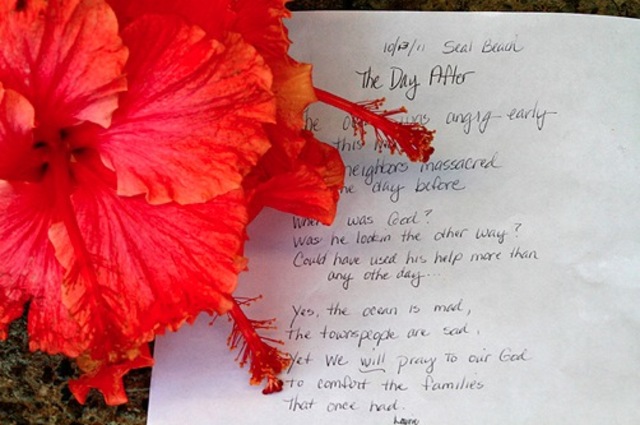 10/13/11 Seal Beach
The Day After
was angry early
this
neighbors massacred
the day before
Where was God?
Was he lookin the other way?
Could have used his help more than
any othe day...
Yes, the ocean is mad,
The townspeople are sad.
Yet We will pray To our God
to comfort the families
That once had.